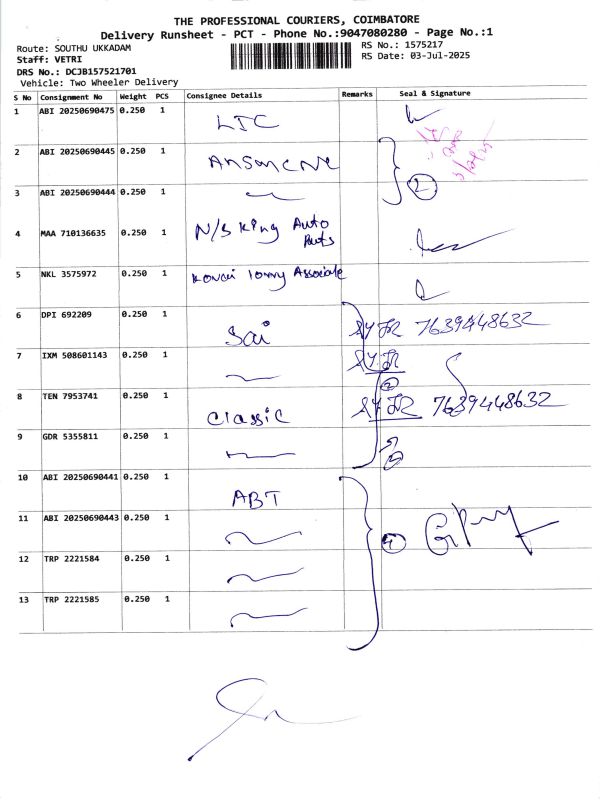 THE PROFESSIONAL COURIERS, COIMBATORE
Delivery Runsheet - PCT - Phone No.:9047080280 - Page No.:1
Route: SOUTHU UKKADAM
RS No.: 1575217
Staff: VETRI
RS Date: 03-Jul-2025
DRS No.: DCJB157521701
Vehicle: Two Wheeler Delivery
S No Consignment No Weight PCS Consignee Details Remarks Seal & Signature
1 ABI 20250690475 0.250 1 LIC
2 ABI 20250690445 0.250 1
3 ABI 20250690444 0.250 1
2
4 MAA 710136635 0.250 1 N/S King Auto Parts
5 NKL 3575972 0.250 1 Associate
6 DPI 692209 0.250 1 Sai 7639448632
7 IXM 508601143 0.250 1
8 TEN 7953741 0.250 1 Classic 7639448632
9 GDR 5355811 0.250 1
10 ABI 20250690441 0.250 1 ABT
11 ABI 20250690443 0.250 1
4
12 TRP 2221584 0.250 1
13 TRP 2221585 0.250 1